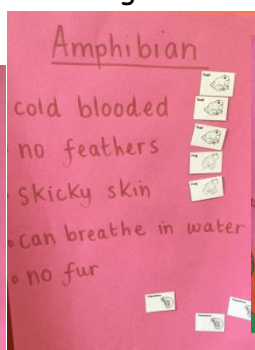 Amphibian
cold blooded
no feathers
skicky skin
can breathe in water
no fur